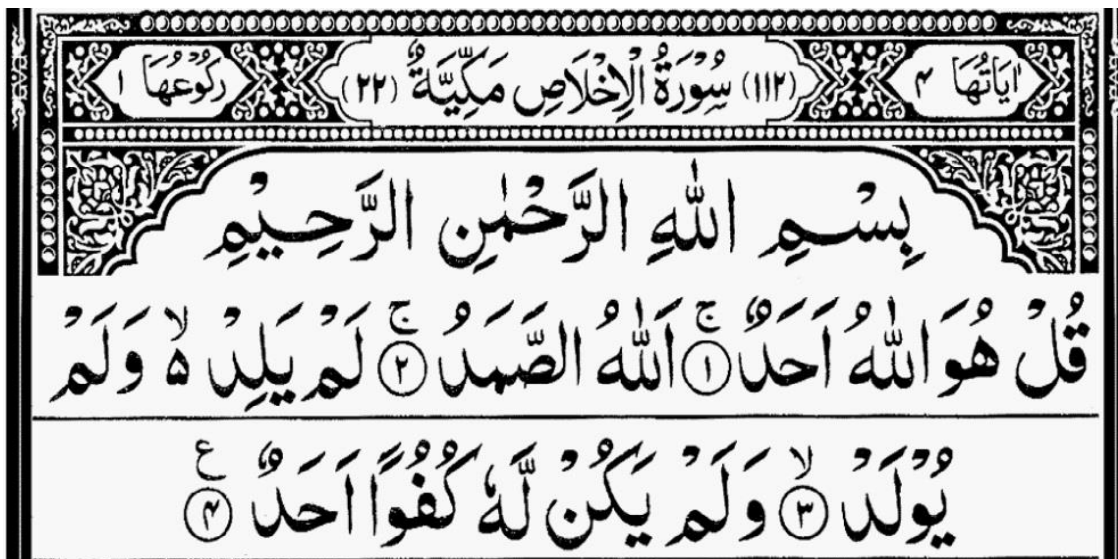 اٰيَاتُهَا ۴ (۱۱۲) سُوْرَةُ الْاِخْلَاصِ مَكِّيَّةٌ (۲۲) رُكُوْعُهَا ۱
بِسْمِ اللّٰهِ الرَّحْمٰنِ الرَّحِيْمِ
قُلْ هُوَ اللّٰهُ اَحَدٌ ۚ ۱ اَللّٰهُ الصَّمَدُ ۚ ۲ لَمْ يَلِدْ ۙ۬ وَلَمْ
يُوْلَدْ ۙ ۳ وَلَمْ يَكُنْ لَّهٗ كُفُوًا اَحَدٌ ع ۴